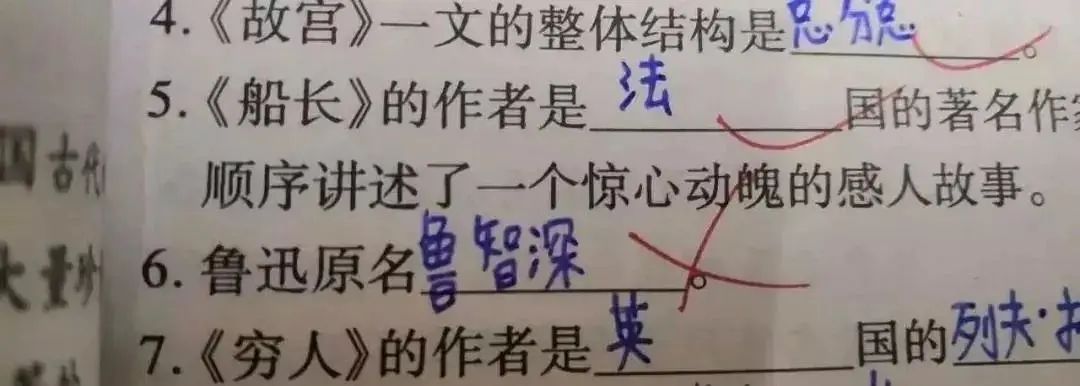 4.《故宫》一文的整体结构是总分总。
5.《船长》的作者是法国的著名作
国古
顺序讲述了一个惊心动魄的感人故事。
大量
6.鲁迅原名鲁智深。
7.《穷人》的作者是英国的列夫·